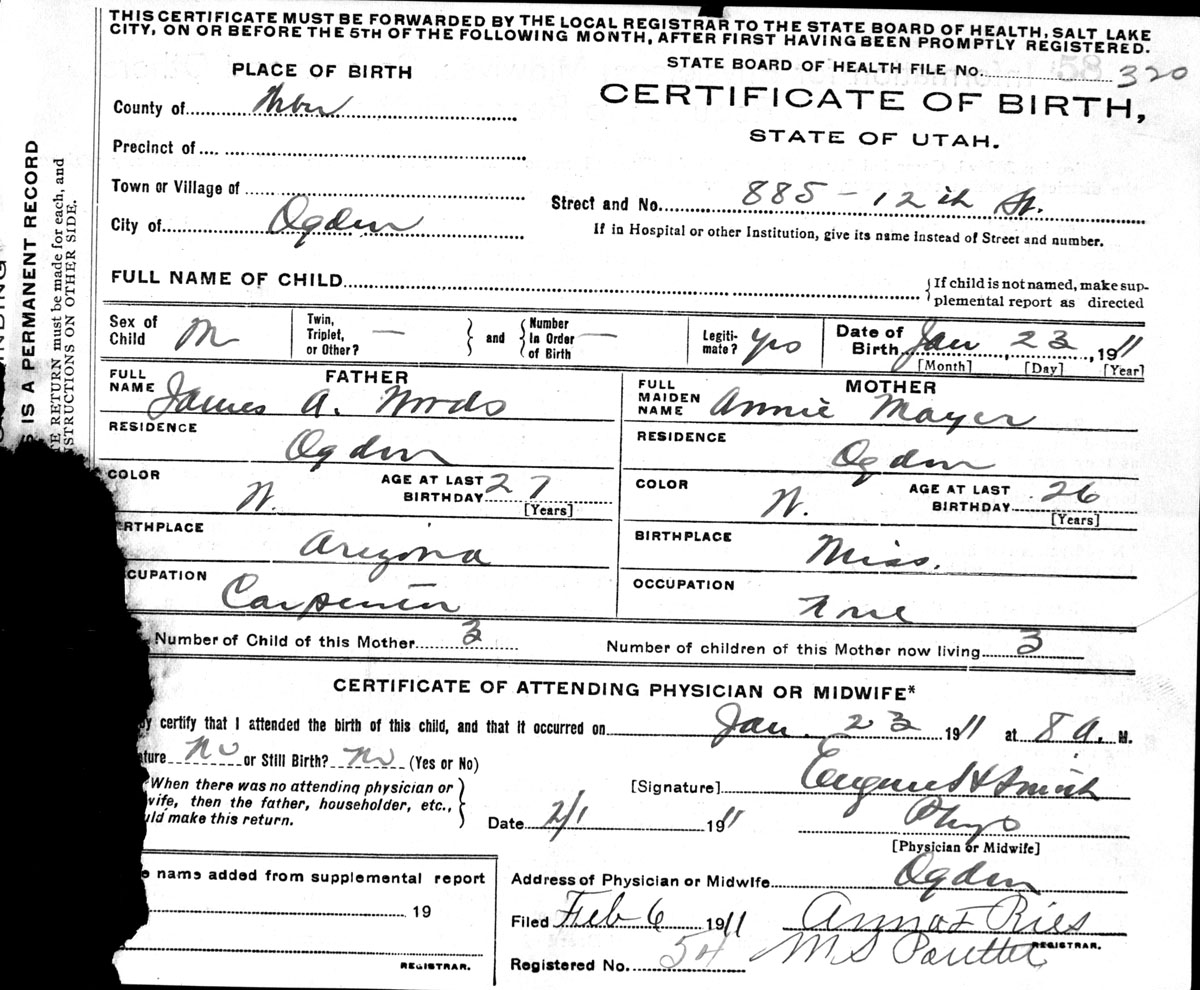 THIS CERTIFICATE MUST BE FORWARDED BY THE LOCAL REGISTRAR TO THE STATE BOARD OF HEALTH, SALT LAKE
CITY, ON OR BEFORE THE 5TH OF THE FOLLOWING MONTH, AFTER FIRST HAVING BEEN PROMPTLY REGISTERED.
PLACE OF BIRTH
STATE BOARD OF HEALTH FILE No. 320
CERTIFICATE OF BIRTH,
STATE OF UTAH.
County of Weber
Precinct of
Town or Village of
Street and No. 885 - 12th St.
City of Ogden
If in Hospital or other Institution, give its name Instead of Street and number.
FULL NAME OF CHILD
If child is not named, make sup-
plemental report as directed
Sex of Child M
Twin, Triplet, or Other? —
and
Number in Order of Birth —
Legiti-mate? yes
Date of Birth Jan 23, 1911
[Month] [Day] [Year]
FATHER
FULL NAME James A.
RESIDENCE Ogden
COLOR W.
AGE AT LAST BIRTHDAY 27
[Years]
BIRTHPLACE Arizona
CUPATION Carpenter
MOTHER
FULL MAIDEN NAME Annie Mayer
RESIDENCE Ogden
COLOR W.
AGE AT LAST BIRTHDAY 26
[Years]
BIRTHPLACE Miss.
OCCUPATION None
Number of Child of this Mother 3
Number of children of this Mother now living 3
CERTIFICATE OF ATTENDING PHYSICIAN OR MIDWIFE*
y certify that I attended the birth of this child, and that it occurred on Jan. 23 1911 at 8 A. M.
ature No or Still Birth? No (Yes or No)
When there was no attending physician or
wife, then the father, householder, etc.,
uld make this return.
[Signature] Eugene H Smith
Date 2/1 1911
Phys
[Physician or Midwife]
e name added from supplemental report
19
REGISTRAR.
Address of Physician or Midwife Ogden
Filed Feb 6 1911 Anna F Ries
REGISTRAR.
Registered No. 54 M S
IS A PERMANENT RECORD
E RETURN must be made for each, and
STRUCTIONS ON OTHER SIDE.